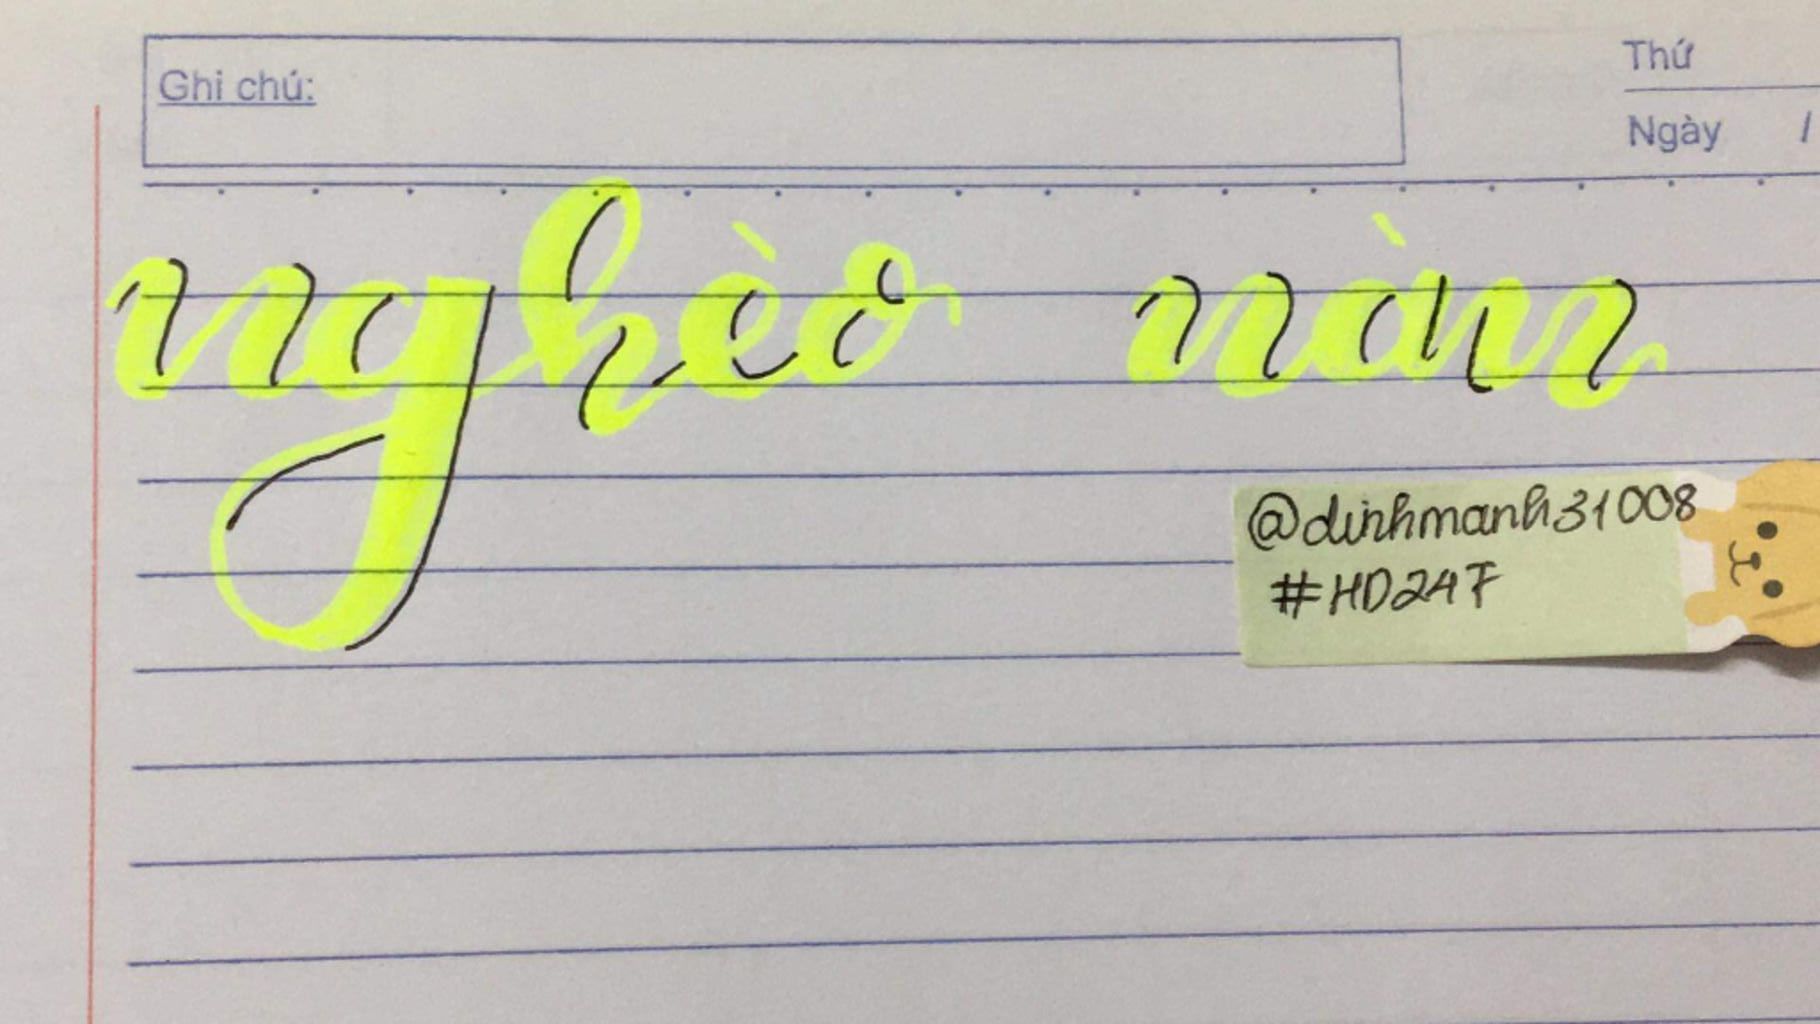 Ghi chú:
Thứ
Ngày /
nghèo nàn
@dinhmanh31008
#HD247